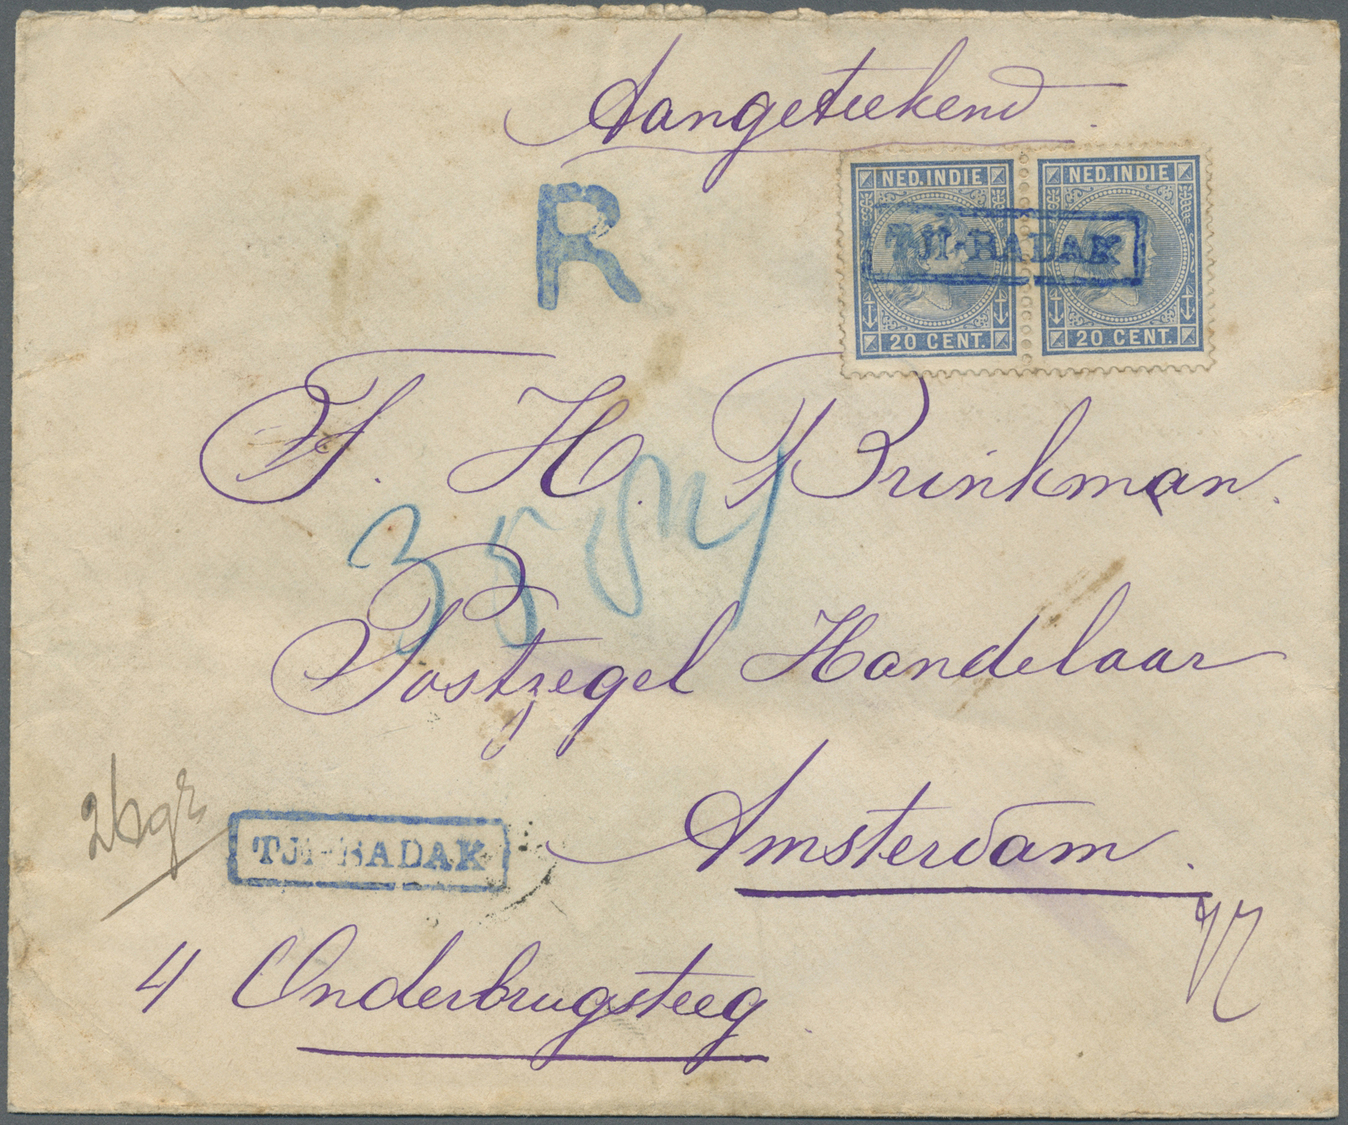 Aangeteekend.
R
NED. INDIE NED. INDIE
TJI-BADAK
20 CENT. 20 CENT.
F. H. Brinkman.
35
Postzegel Handelaar
Amsterdam.
26 gr
TJI-BADAK
4 Onderbrugsteeg